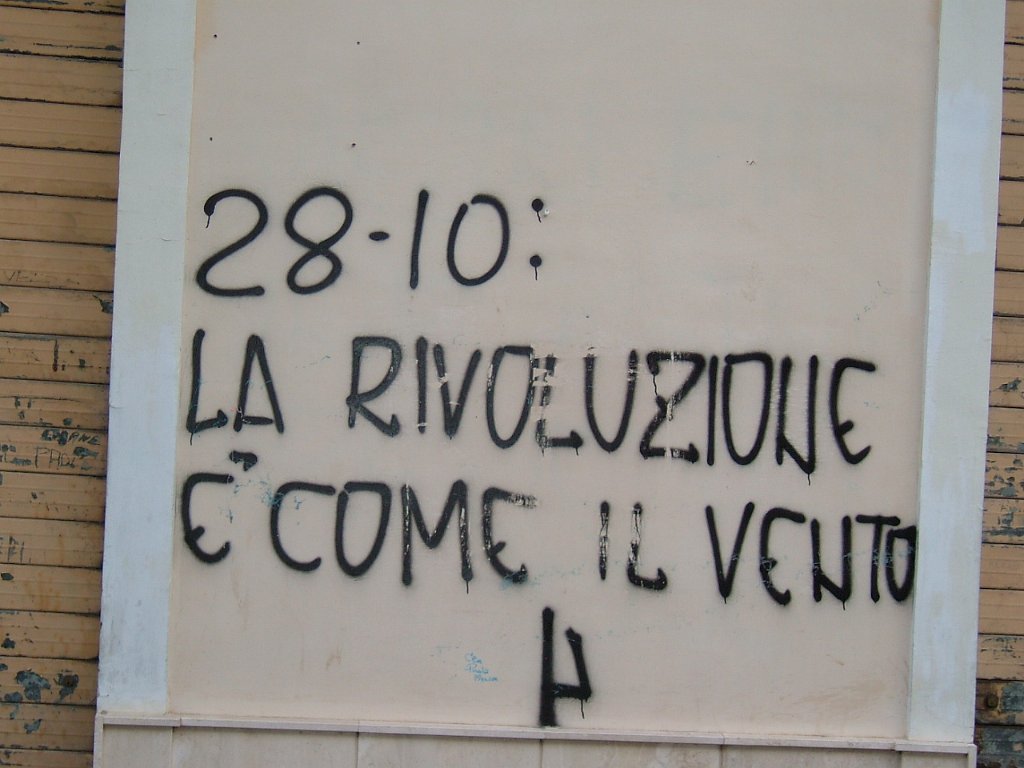 28-10:
LA RIVOLUZIONE
E' COME IL VENTO